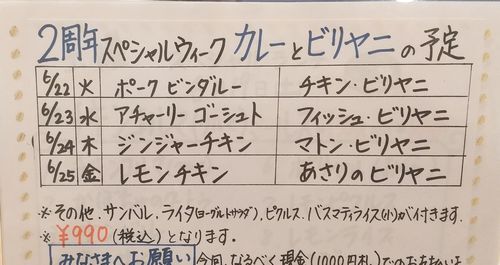 2周年スペシャルウィーク カレーとビリヤニの予定
6/22 火 ポークビンダルー チキン・ビリヤニ
6/23 水 アチャーリーゴーシュト フィッシュ・ビリヤニ
6/24 木 ジンジャーチキン マトン・ビリヤニ
6/25 金 レモンチキン あさりのビリヤニ
※その他、サンバル、ライタ(ヨーグルトサラダ)、ピクルス、バスマティライス(小)が付きます。
※¥990(税込)となります。
みなさまへお願い 今回、なるべく現金(1000円札)でのお支払いよ